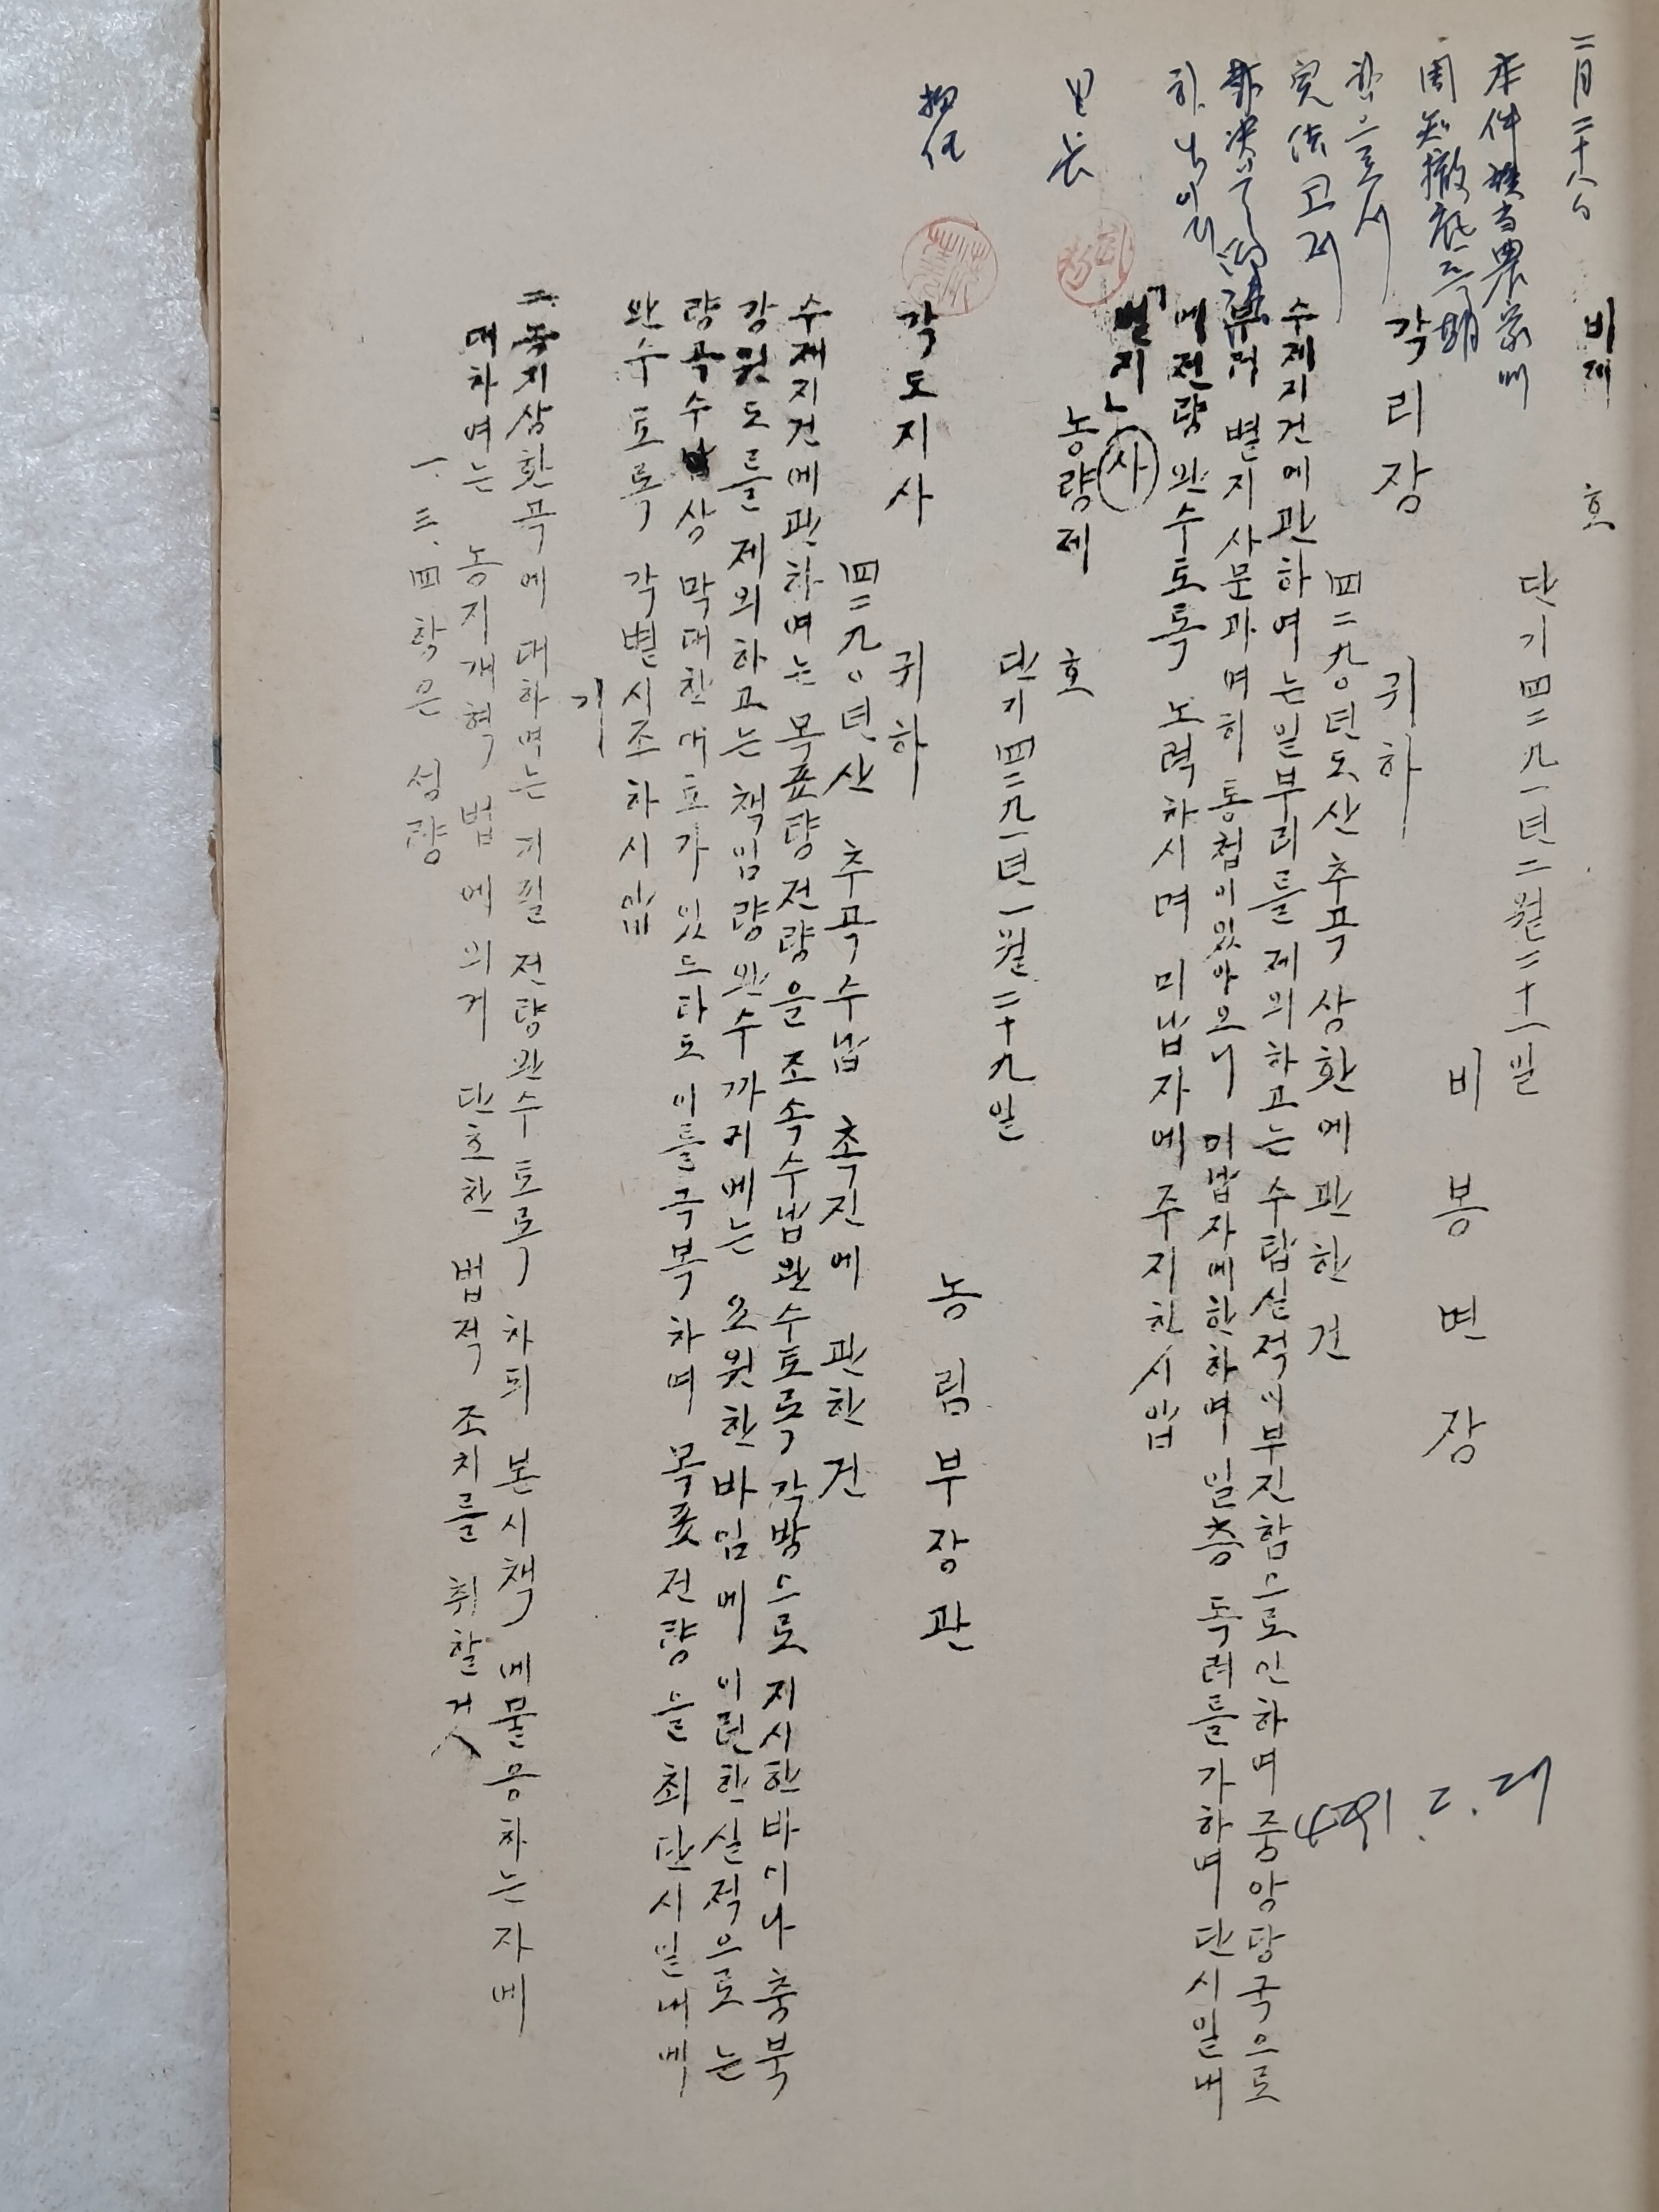 비제 호
단기四二九一년二월二十一일
비봉면장
각리장 귀하
四二九〇년도산 추곡 상환에 관한 건
수제지건에 관하여는 일부리를 제외하고는 수납실적이 부진함으로 인하여 중앙당국으로
부터 별지 사문과 여히 통첩이 있아오니 미납자에 한하여 일층 독려를 가하여 단시일내
에 전량 완수토록 노력하시며 미납자에 주지한시압
별지 사
농량제 호
단기四二九一년一월二十九일
농림부장관
각도지사 귀하
四二九〇년산 추곡수납 촉진에 관한 건
수제지건에 관하여는 목표량 전량을 조속수납완수토록 각방으로 지시한바이나 충북
강원도를 제외하고는 책임량 완수까지에는 요원한바임에 이런한 실적으로는
량곡수납상 막대한 애로가 있드라도 이를 극복하여 목표전량을 최단시일내에
완수토록 각별시조하시압
기
二.농지상환곡에 대하여는 기필 전량완수토록 하되 본시책에 불응하는자에
대하여는 농지개혁법에 의거 단호한 법적조치를 취할것
一.三.四항은 성략
二月二十八日
本件 該当農家에
周知撤底를 期
함으로서
完法고저
하나이다
里長
担任
4291.2.21